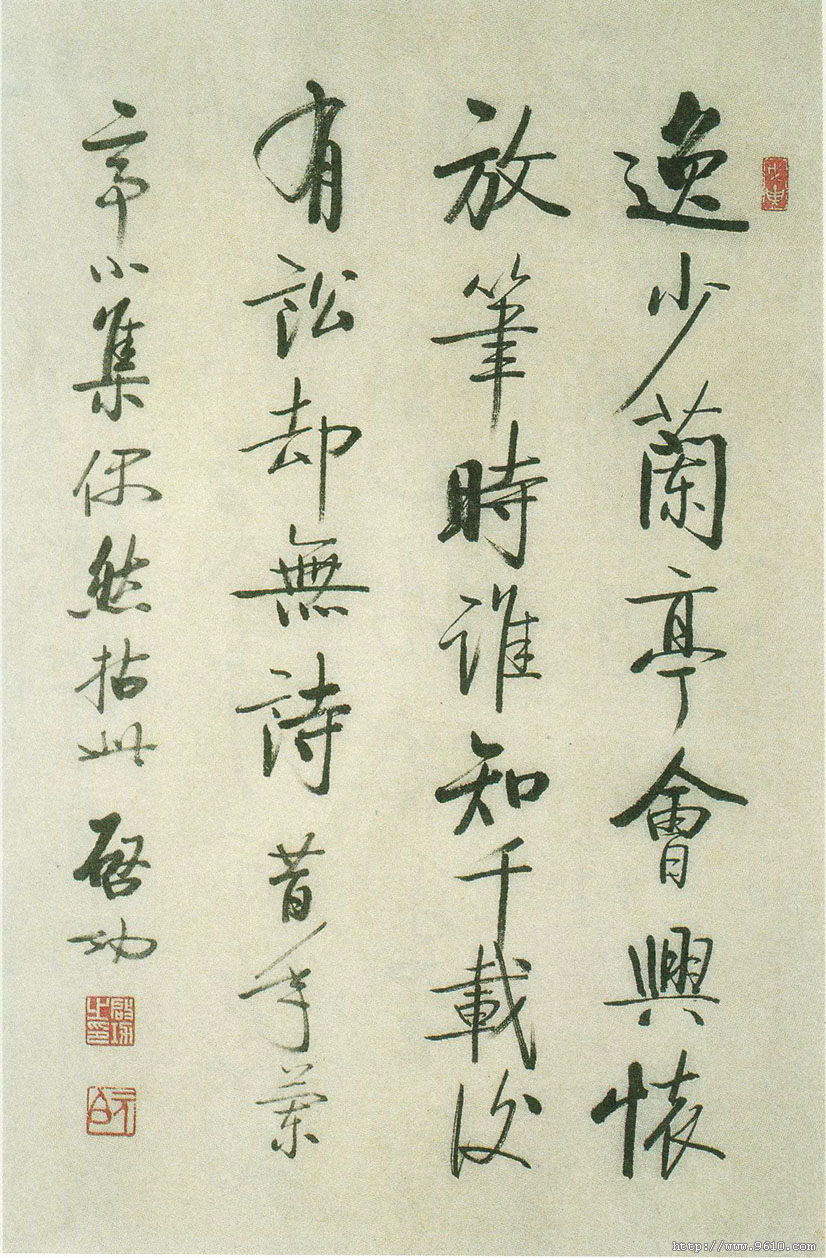 逸少蘭亭會興懷
放筆時誰知千載後
有訟却無詩 昔年蘭
亭小集偶然拈此 啓功
啓功之印
元白
http://www.9610.com